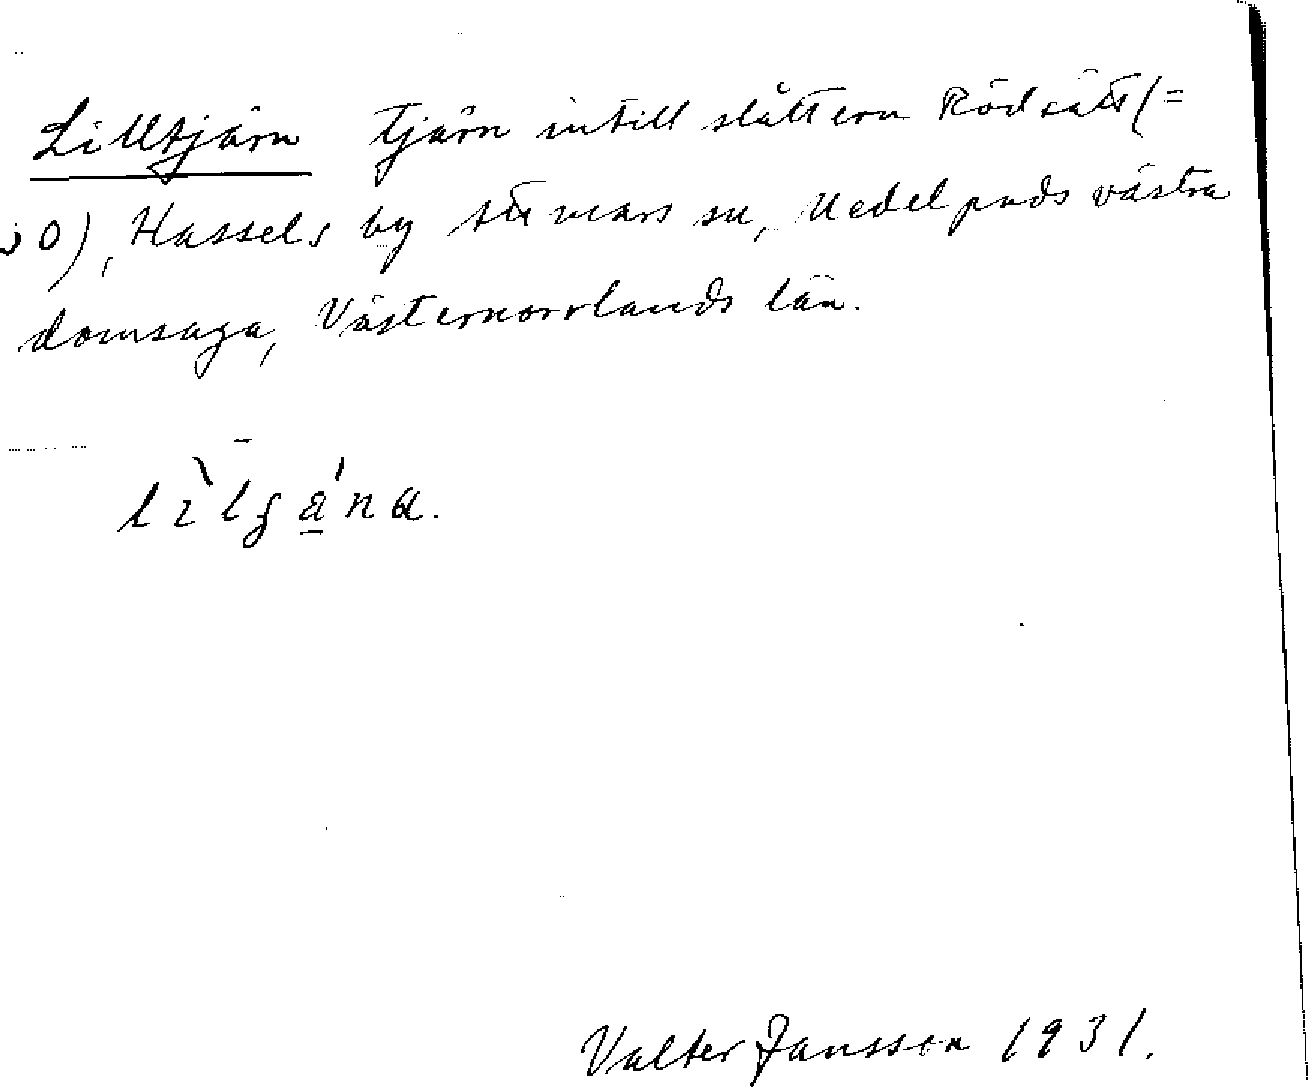 Lilltjärn tjärn intill slåttern Rödsätt (=
30), Hassels by Stuvans sn, Medelpads västra
domsaga, Västernorrlands län.
Valter Jansson 1931.